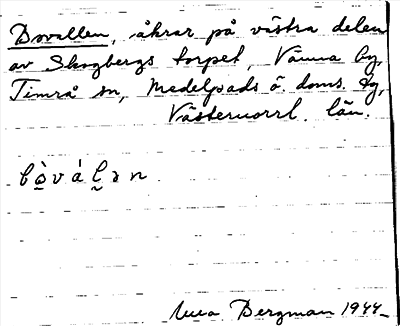 Bovallen, åkrar på västra delen
av Skogbergs torpet, Vänna by,
Timrå sn, Medelpads ö. doms. dg,
Västernorrl. län.
bòváḷən.
Bergman 1944